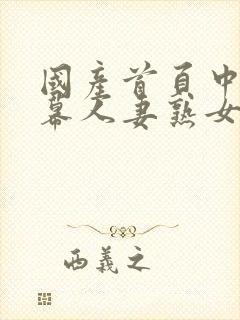 國產首頁中
幕人妻熟女
西義之